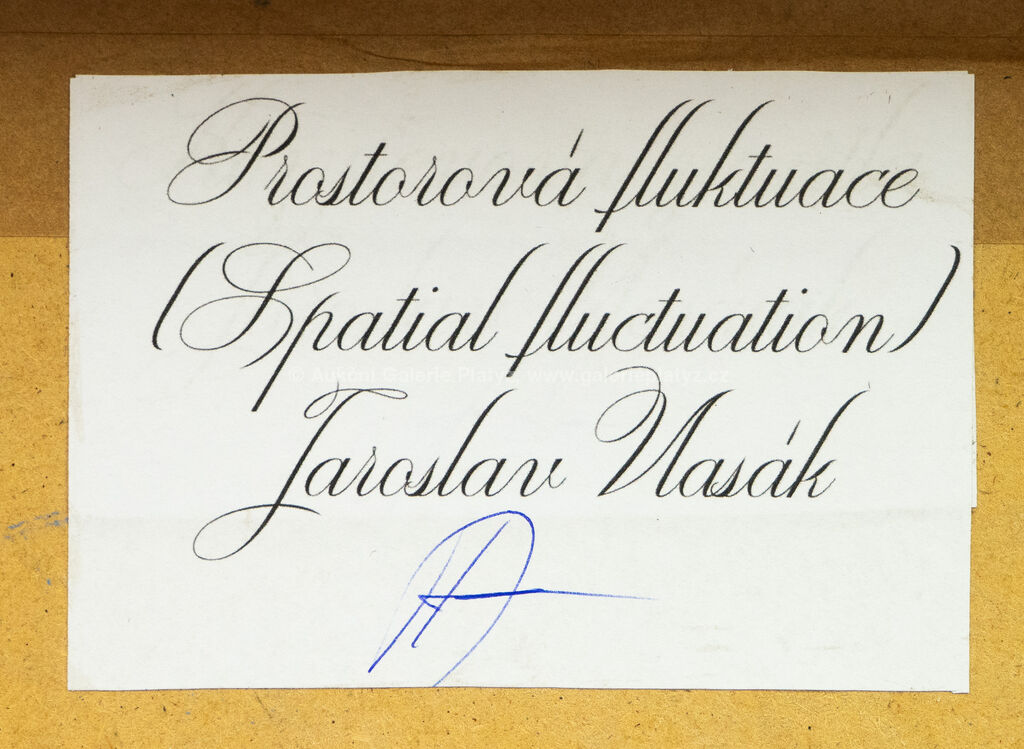 Prostorová fluktuace
(Spatial fluctuation)
© Aukční Galerie Platýz, www.galerieplatyz.cz
Jaroslav Vlasák